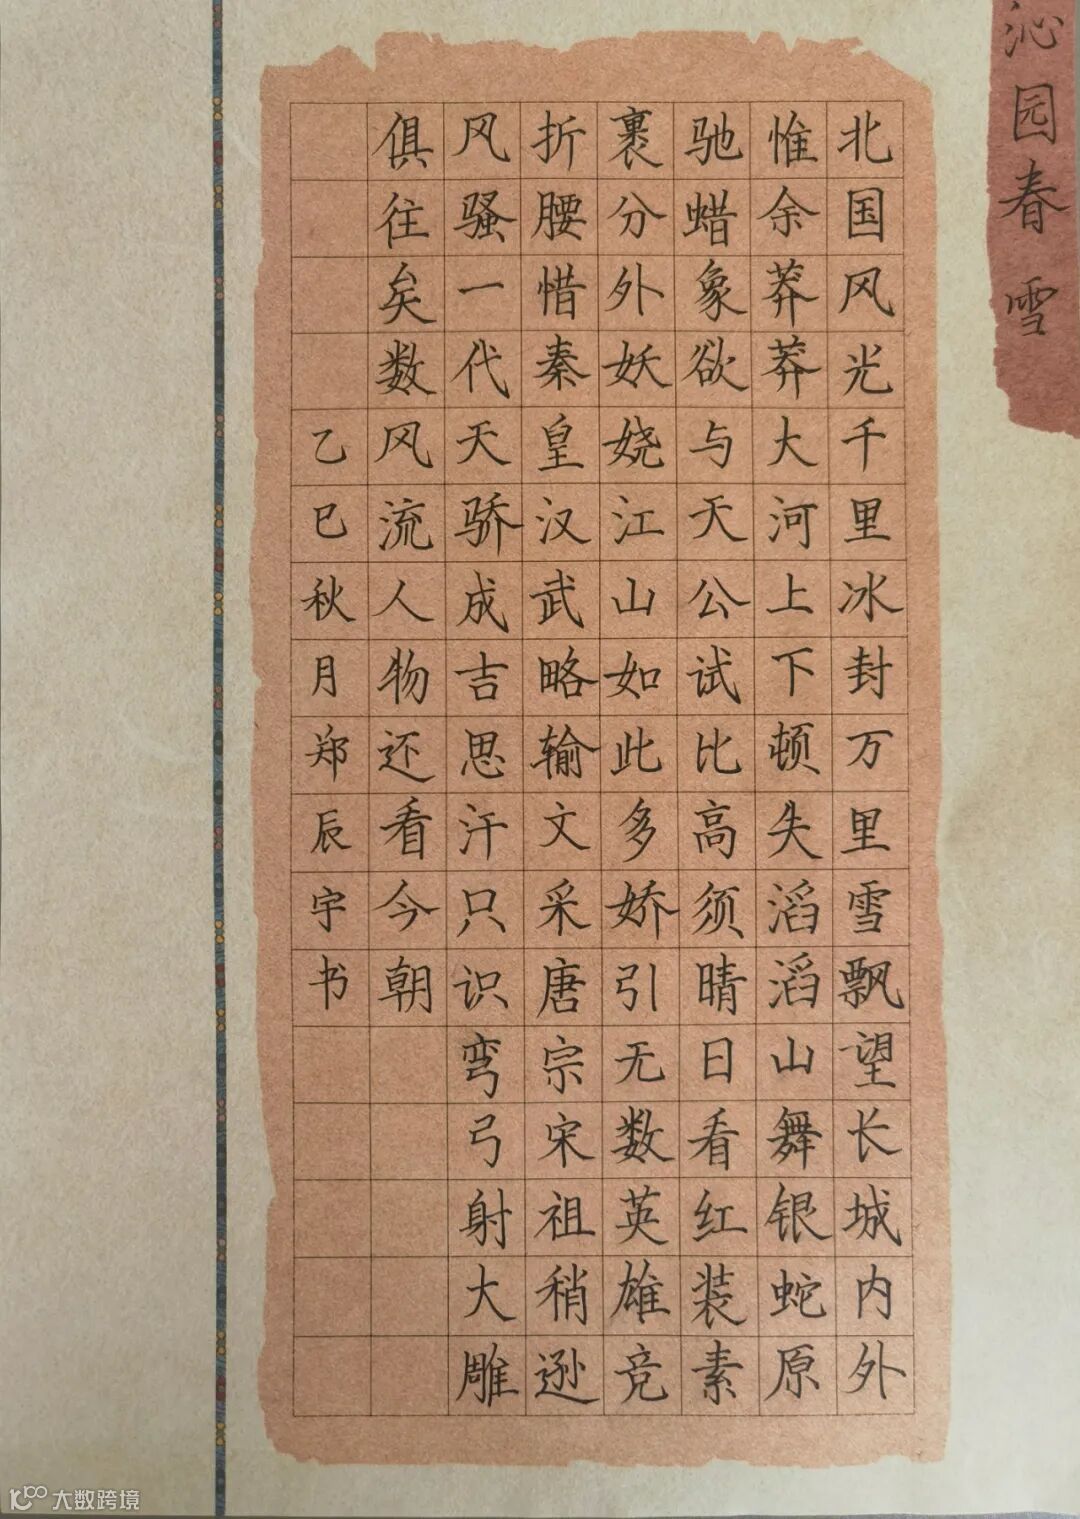 沁园春 雪
北国风光千里冰封万里雪飘望长城内外
惟余莽莽大河上下顿失滔滔山舞银蛇原
驰蜡象欲与天公试比高须晴日看红装素
裹分外妖娆江山如此多娇引无数英雄竞
折腰惜秦皇汉武略输文采唐宗宋祖稍逊
风骚一代天骄成吉思汗只识弯弓射大雕
俱往矣数风流人物还看今朝
乙巳秋月郑辰宇书
大数跨境